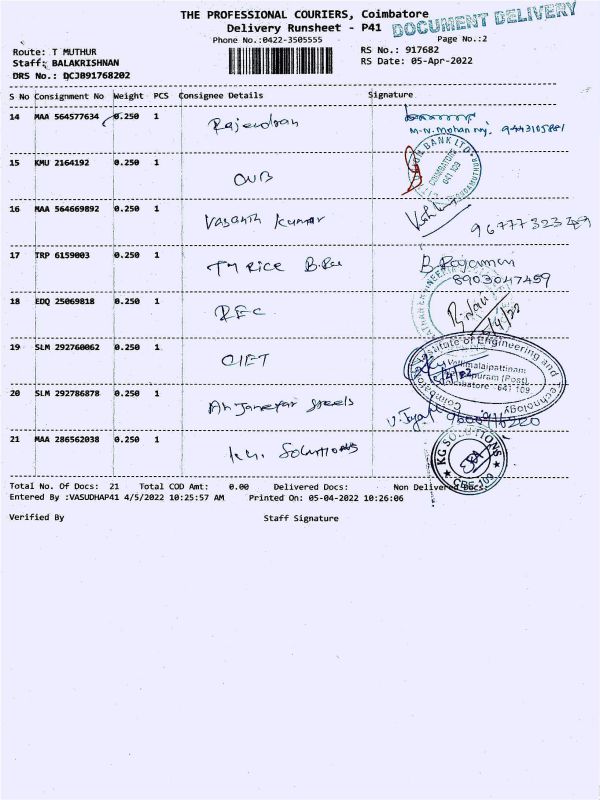 THE PROFESSIONAL COURIERS, Coimbatore
Delivery Runsheet - P41
DOCUMENT DELIVERY
Phone No.:0422-3505555
Page No.:2
Route: T MUTHUR
RS No.: 917682
Staff: BALAKRISHNAN
RS Date: 05-Apr-2022
DRS No.: DCJB91768202
S No Consignment No Weight PCS Consignee Details Signature
14 MAA 564577634 0.250 1 Rajendran
M.N. Mohan 9443105881
15 KMU 2164192 0.250 1 CUB
UNION BANK LTD
COIMBATORE
641 109
16 MAA 564669892 0.250 1 Vasanth Kumar
17 TRP 6159003 0.250 1 TM Rice
8903047459
18 EDQ 25069818 0.250 1 REC
19 SLM 292760062 0.250 1 CIET
Coimbatore Institute of Engineering and Technology
Vellimalaipattinam
(Post),
Coimbatore - 641 109
20 SLM 292786878 0.250 1 Anjaneyar Steels
21 MAA 286562038 0.250 1 K.G. Solutions
KG SOLUTIONS
CBE-109
Total No. Of Docs: 21 Total COD Amt: 0.00 Delivered Docs: Non Delivered Docs:
Entered By :VASUDHAP41 4/5/2022 10:25:57 AM Printed On: 05-04-2022 10:26:06
Verified By Staff Signature